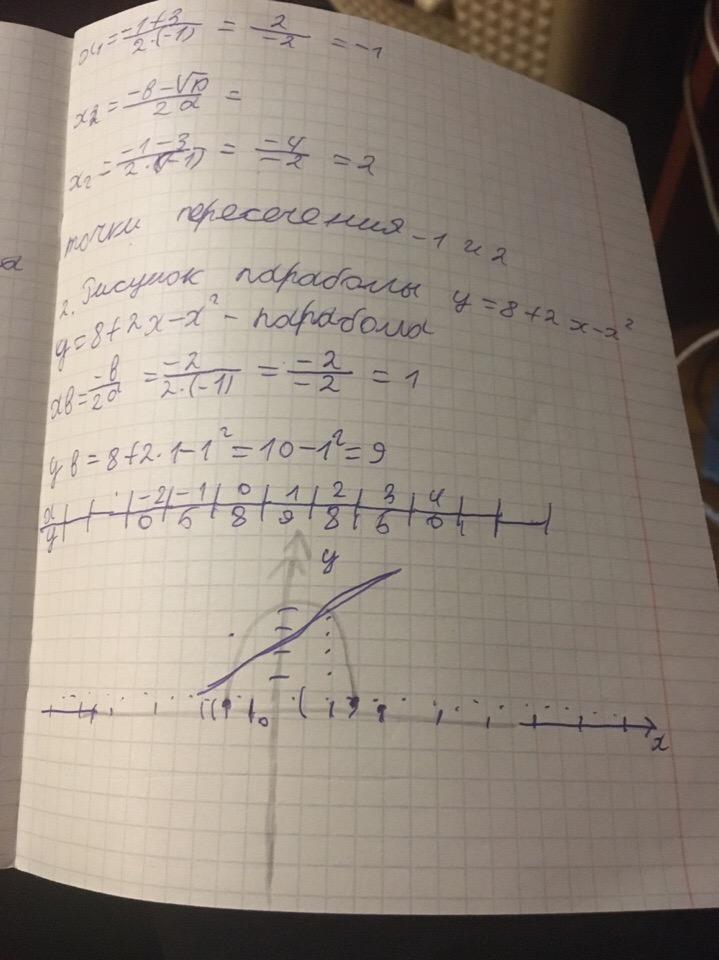 x₁ = (-1+3)/(2·(-1)) = 2/(-2) = -1
x₂ = (-в-√D)/(2a) =
x₂ = (-1-3)/(2·(-1)) = (-4)/(-2) = 2
точки пересечения -1 и 2
2. Рисунок параболы y = 8+2x-x²
y = 8+2x-x² - парабола
xв = -в/2a = -2/(2·(-1)) = -2/-2 = 1
yв = 8+2·1-1² = 10-1² = 9
x | -2 | -1 | 0 | 1 | 2 | 3 | 4
y | 0 | 5 | 8 | 9 | 8 | 5 | 0
y
0
x